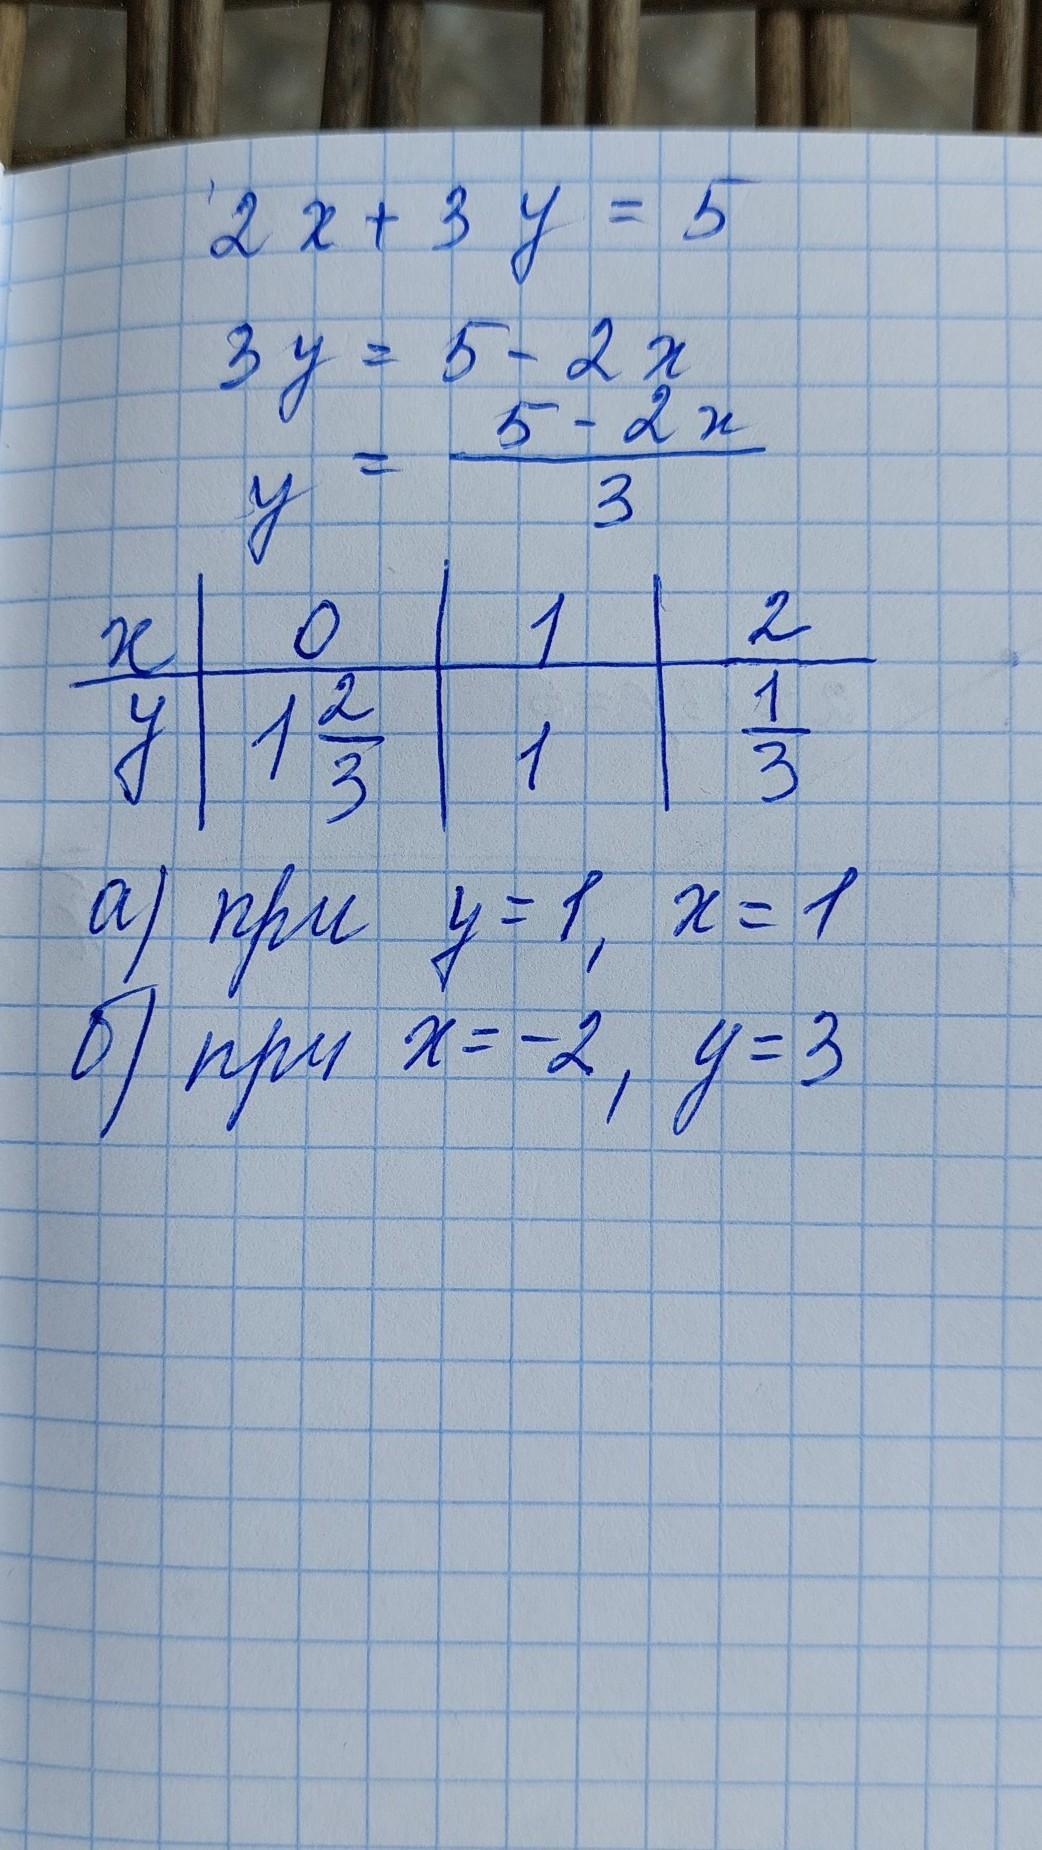 2x + 3y = 5
3y = 5 - 2x
y = (5 - 2x)/3
x | 0 | 1 | 2
y | 1 2/3 | 1 | 1/3
а) при y = 1, x = 1
б) при x = -2, y = 3